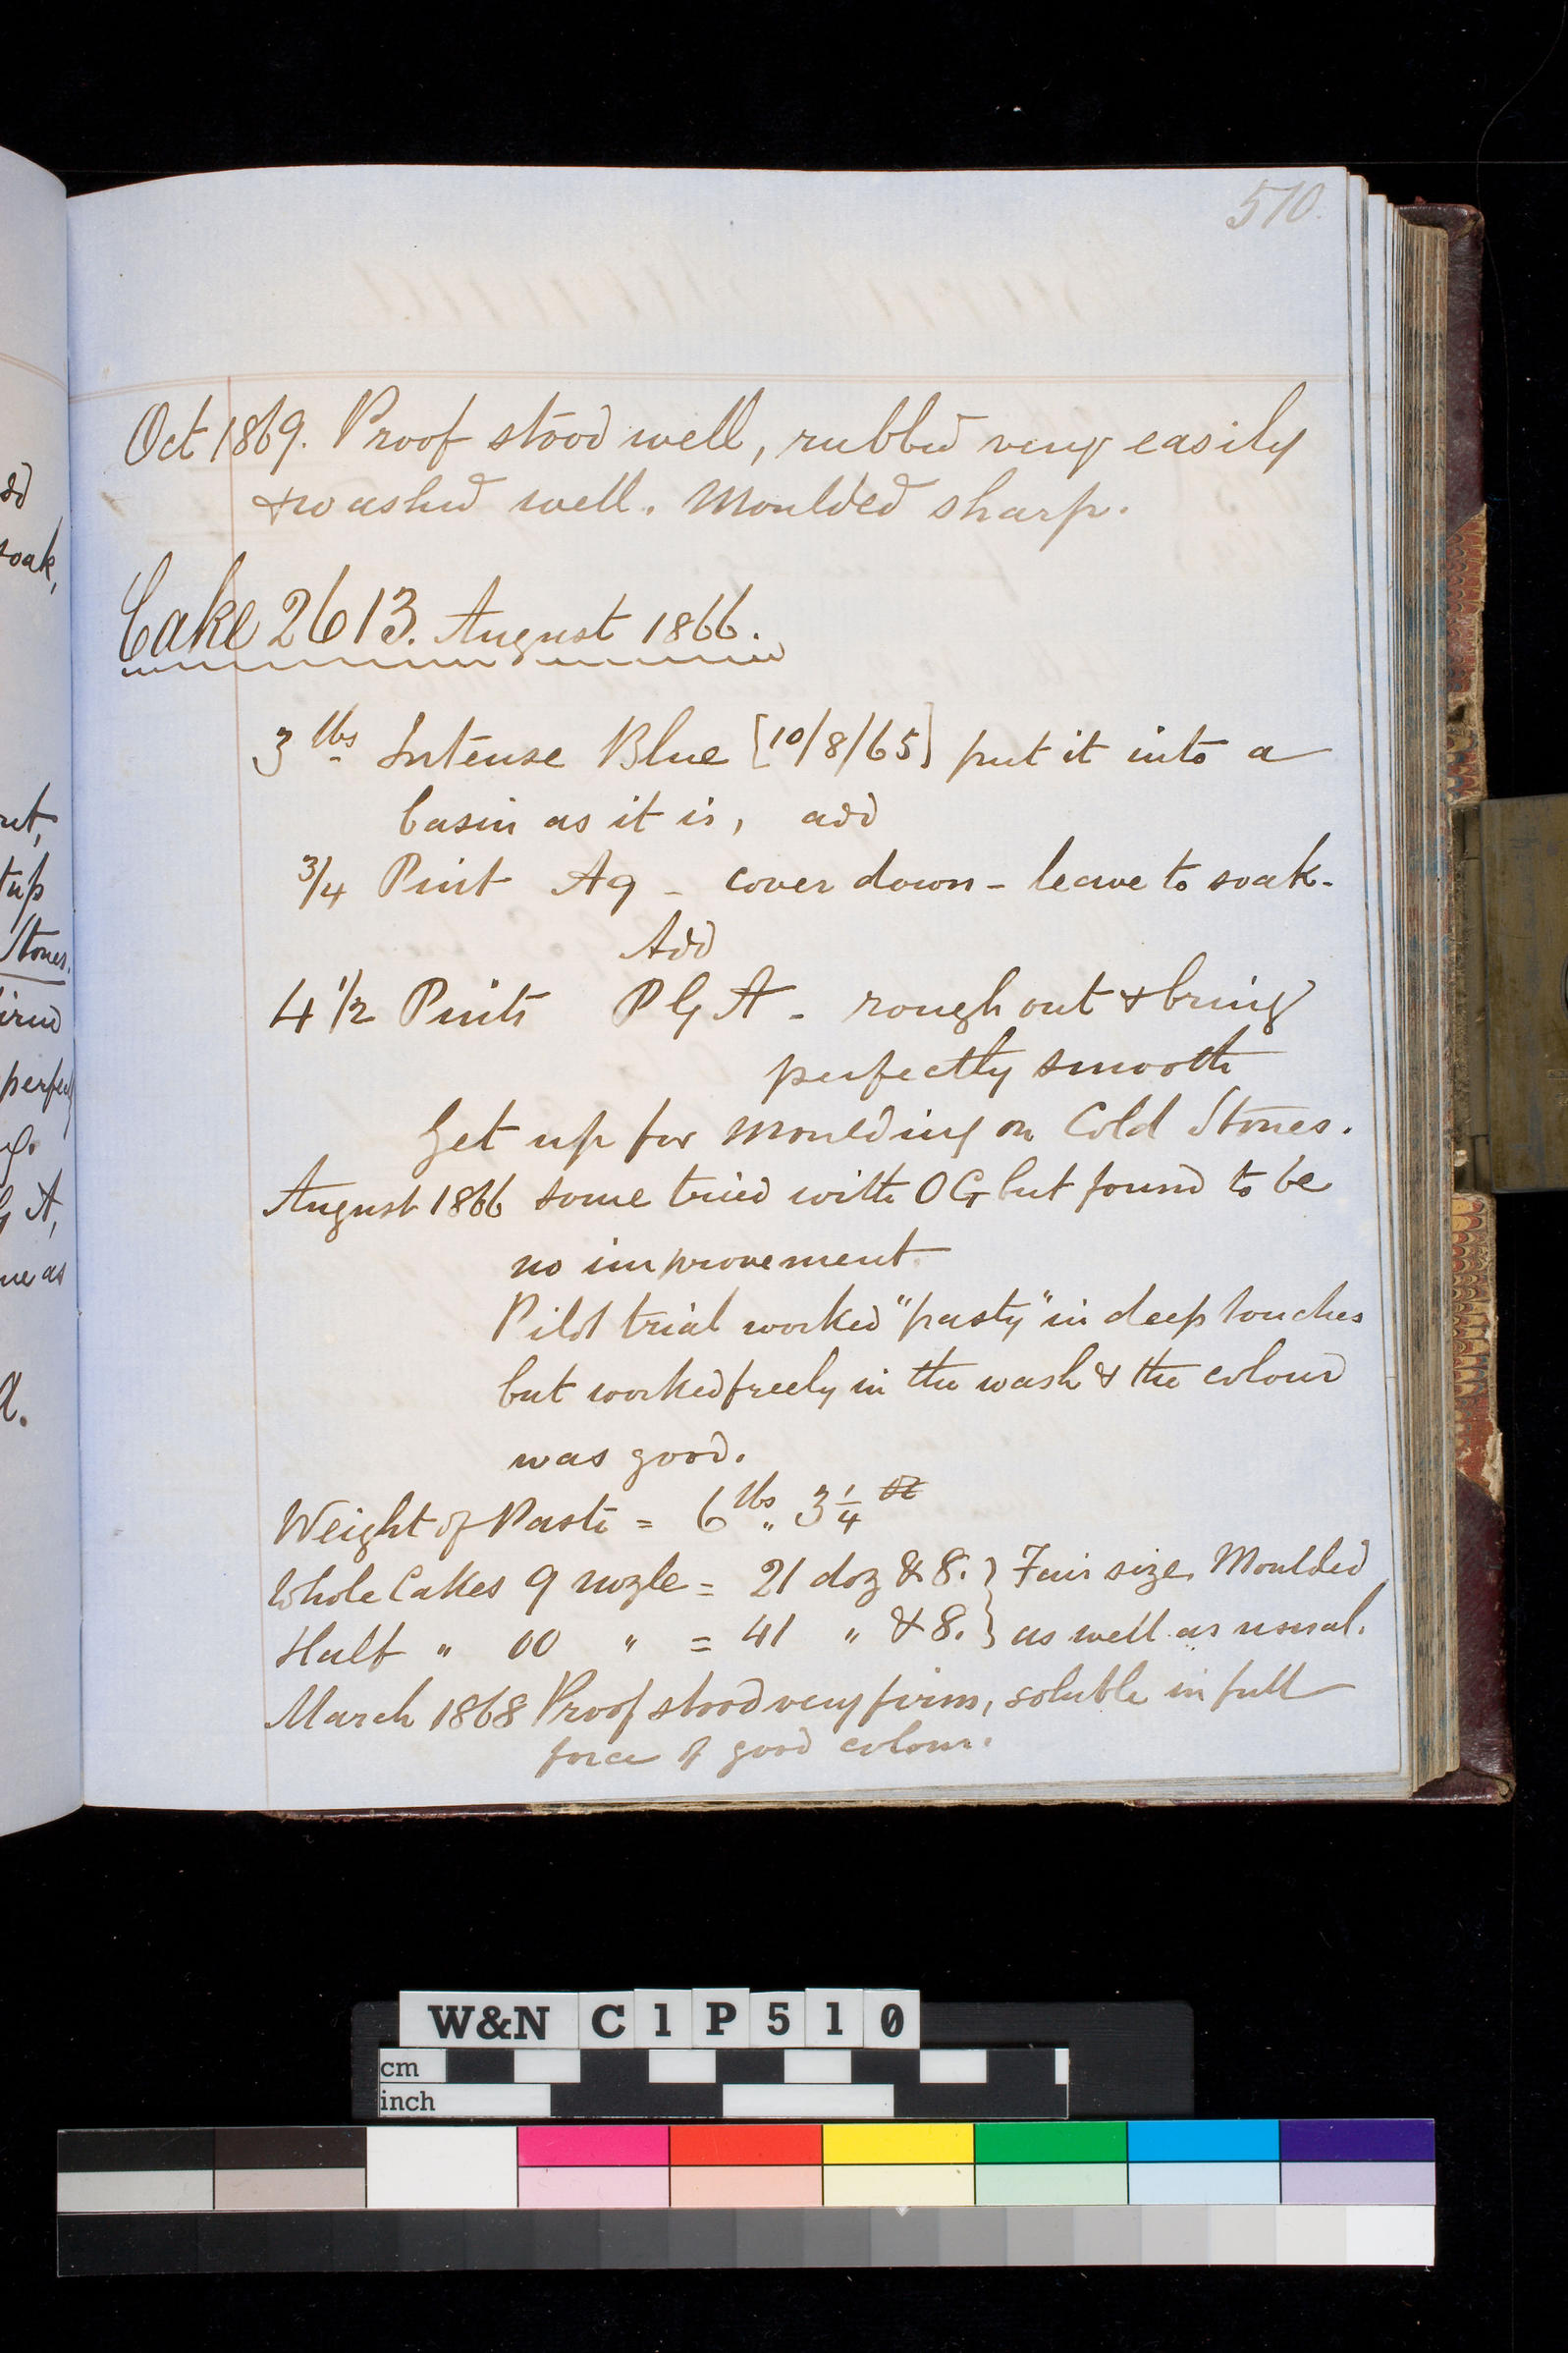 510.
Oct 1869. Proof stood well, rubbed very easily
& washed well. Moulded sharp.
Cake 2613. August 1866.
3 lbs Intense Blue [10/8/65] put it into a
basin as it is, add
3/4 Pint Aq - cover down - leave to soak -
Add
4 1/2 Pints PGA - rough out & bring
perfectly smooth
Get up for moulding on Cold Stones.
August 1866 some tried with OG but found to be
no improvement.
Pilot trial worked "pasty" in deep touches
but worked freely in the wash & the colour
was good.
Weight of Paste = 6 lbs " 3 1/4
Whole Cakes 9 nozle = 21 doz & 8. } Fair size. Moulded
Half " 00 " = 41 " & 8. } as well as usual.
March 1868 Proof stood very firm, soluble in full
force & good colour.
sd
soak,
out,
t up
Stones.
perfectly
G A,
me as
W&N C1P510
cm
inch